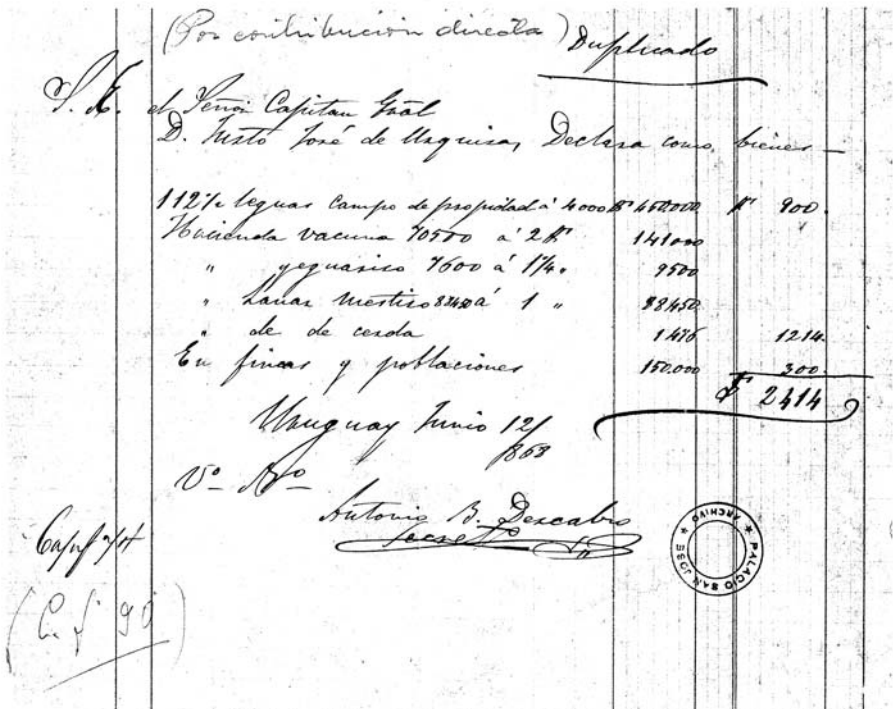 (Por contribucion directa) Duplicado
S. E. el Señor Capitan Gral
D. Justo José de Urquiza, Declara como bienes —
112½ leguas campo de propiedad á 4000 $ 450.000 $ 900.
Hacienda vacuna 70500 á 2 $ 141000
" yeguariso 7600 á 1¼ " 9500
" Lanar mestiso 88450 á 1 " 88450
" de de cerda 1476 1214.
En fincas y poblaciones 150.000 300.
$ 2414
Uruguay Junio 12/
868
Vº Bº
Antonio B. Descabro
PALACIO SAN JOSE
★ ARCHIVO ★
90